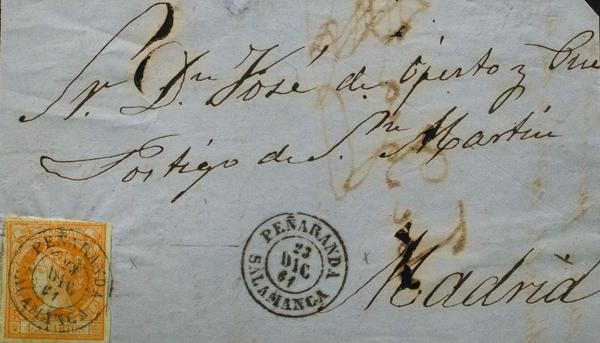 Sr. Dn José de
Postigo de S. Martin
PEÑARANDA
23
DIC
61
SALAMANCA
Madrid
PEÑARANDA
23
DIC
61
SALAMANCA